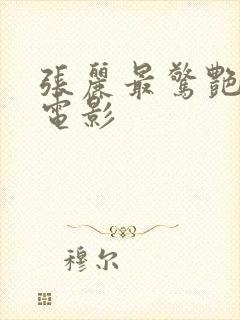 張麗最驚艷
電影
穆尔